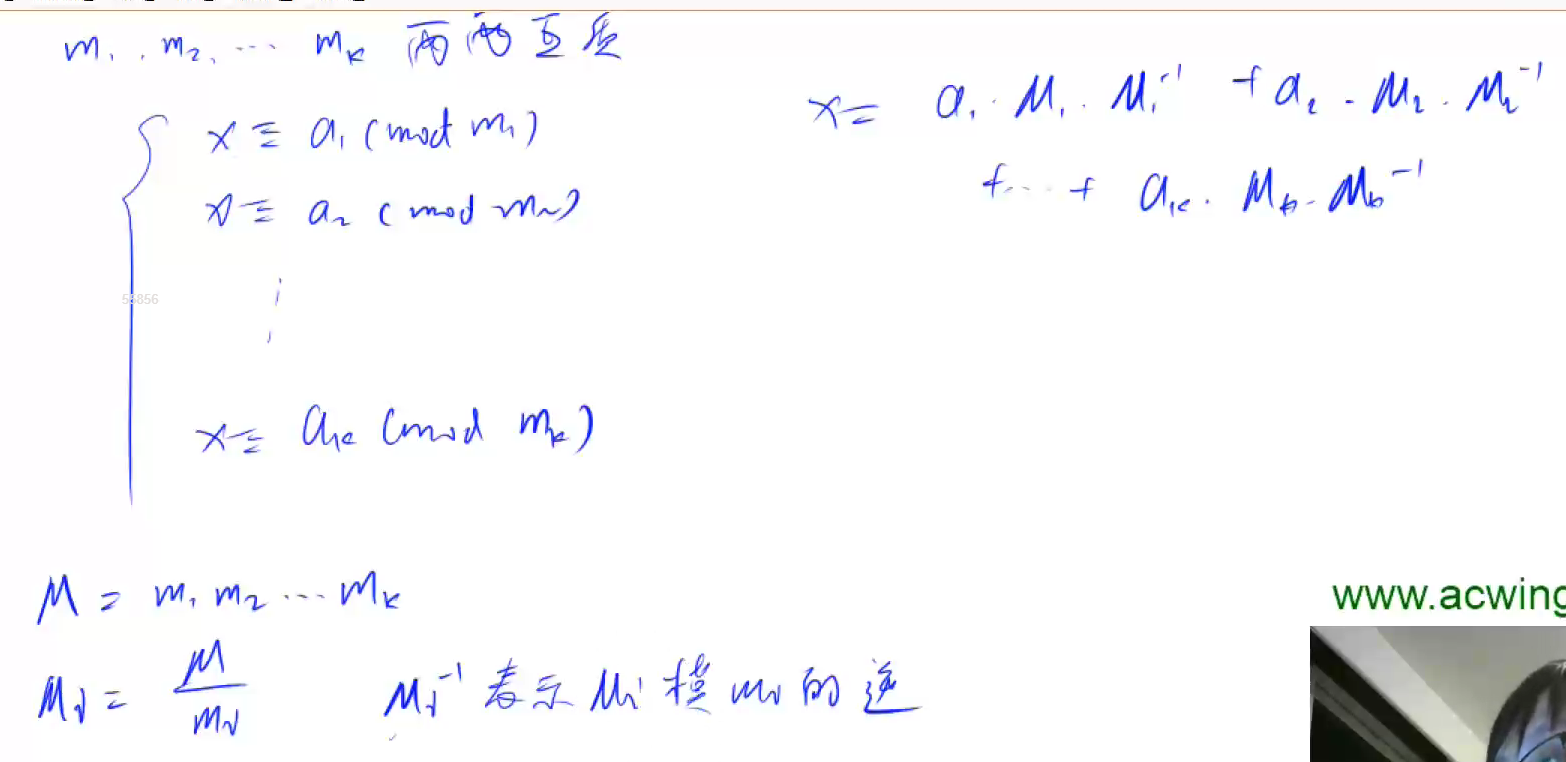 m₁, m₂, ... mₖ 两两互质
x ≡ a₁ (mod m₁)
x ≡ a₂ (mod m₂)
⋮
x ≡ aₖ (mod mₖ)
x = a₁ · M₁ · M₁⁻¹ + a₂ · M₂ · M₂⁻¹
+ ... + aₖ · Mₖ · Mₖ⁻¹
55856
M = m₁ m₂ ... mₖ
Mᵢ = M / mᵢ
Mᵢ⁻¹ 表示 Mᵢ 模 mᵢ 的逆
www.acwing